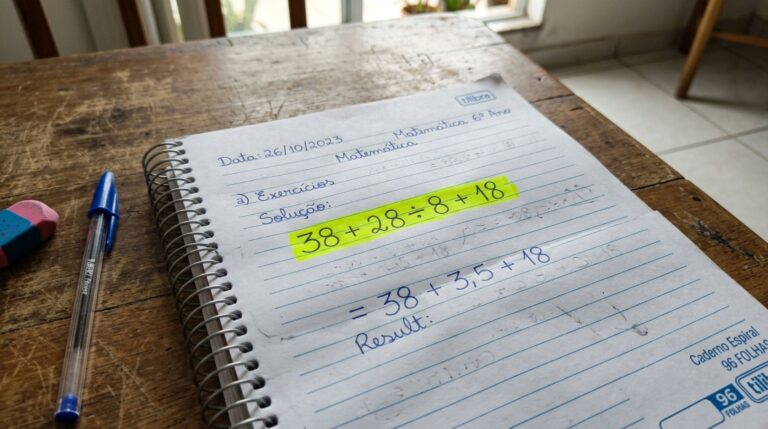 tilibra
Matemática 6º Ano
Data: 26/10/2023
Matemática
a) Exercícios
Solução:
38 + 28 ÷ 8 + 18
= 38 + 3,5 + 18
Result:
Caderno Espiral
96 FOLHAS
96
FOLHAS